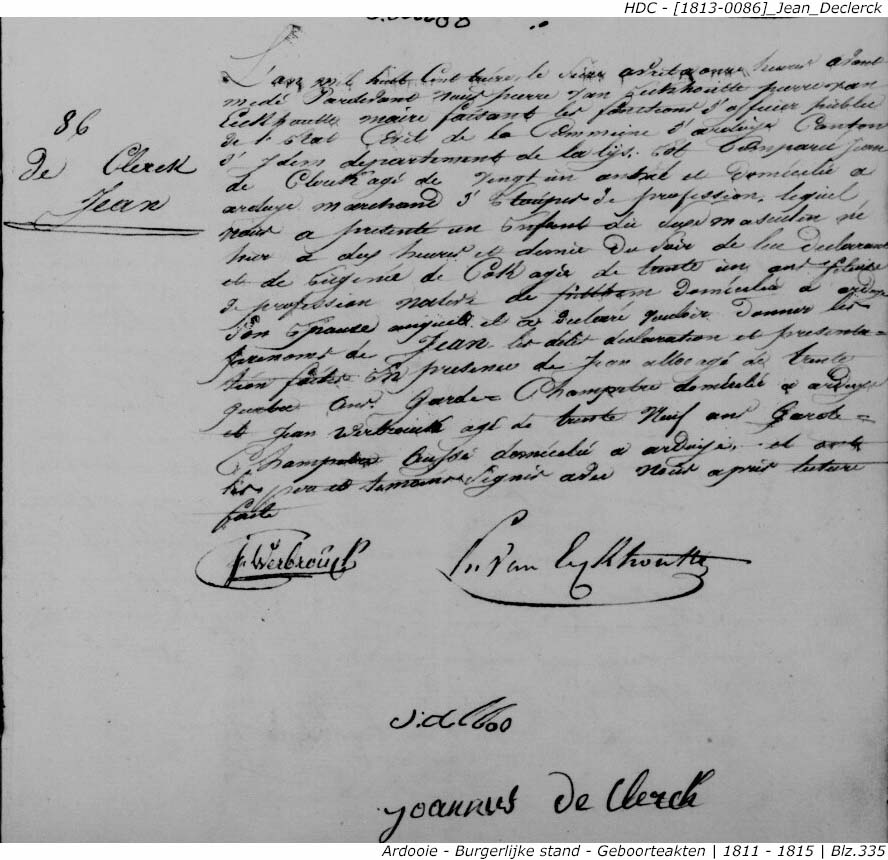 HDC - [1813-0086]_Jean_Declerck
86
de Clerck
Jean
L'an mil huit Cent treize, le seize avril a onze heures avant
midi Pardevant nous pierre van Eeckhoutte pierre van
Eeckhoutte maire faisant les fonctions d'officier public
de l'Etat Civil de la Commune d'ardoye Canton
d'Idem departement de la lijs. Est Comparu jean
de Clerck agé de vingt un et domicilié a
ardoye marchand d'Etoupes de profession, lequel
nous a presenté un Enfant du sexe masculin né
hier a dix heures et demie du soir de lui declarant
et de Eugenie de Cok agée de trente un ans fileuse
de profession native de domiciliée a ardoye
Son Epouse auquel il a declaré vouloir donner les
prenoms de Jean les dites declaration et presenta=
tion faites En presence de Jean agé de trente
quatre ans. Garde= Champetre domicilié a ardoye
et Jean Werbrouck agé de trente Neuf ans Garde=
Champetre Aussi domicilié a ardoye, et
les pere et temoins Signés avec Nous apres lecture
faite
J. Werbrouck
P. Van Eeckhoutte
joannes de Clerck
Ardooie - Burgerlijke stand - Geboorteakten | 1811 - 1815 | Blz.335